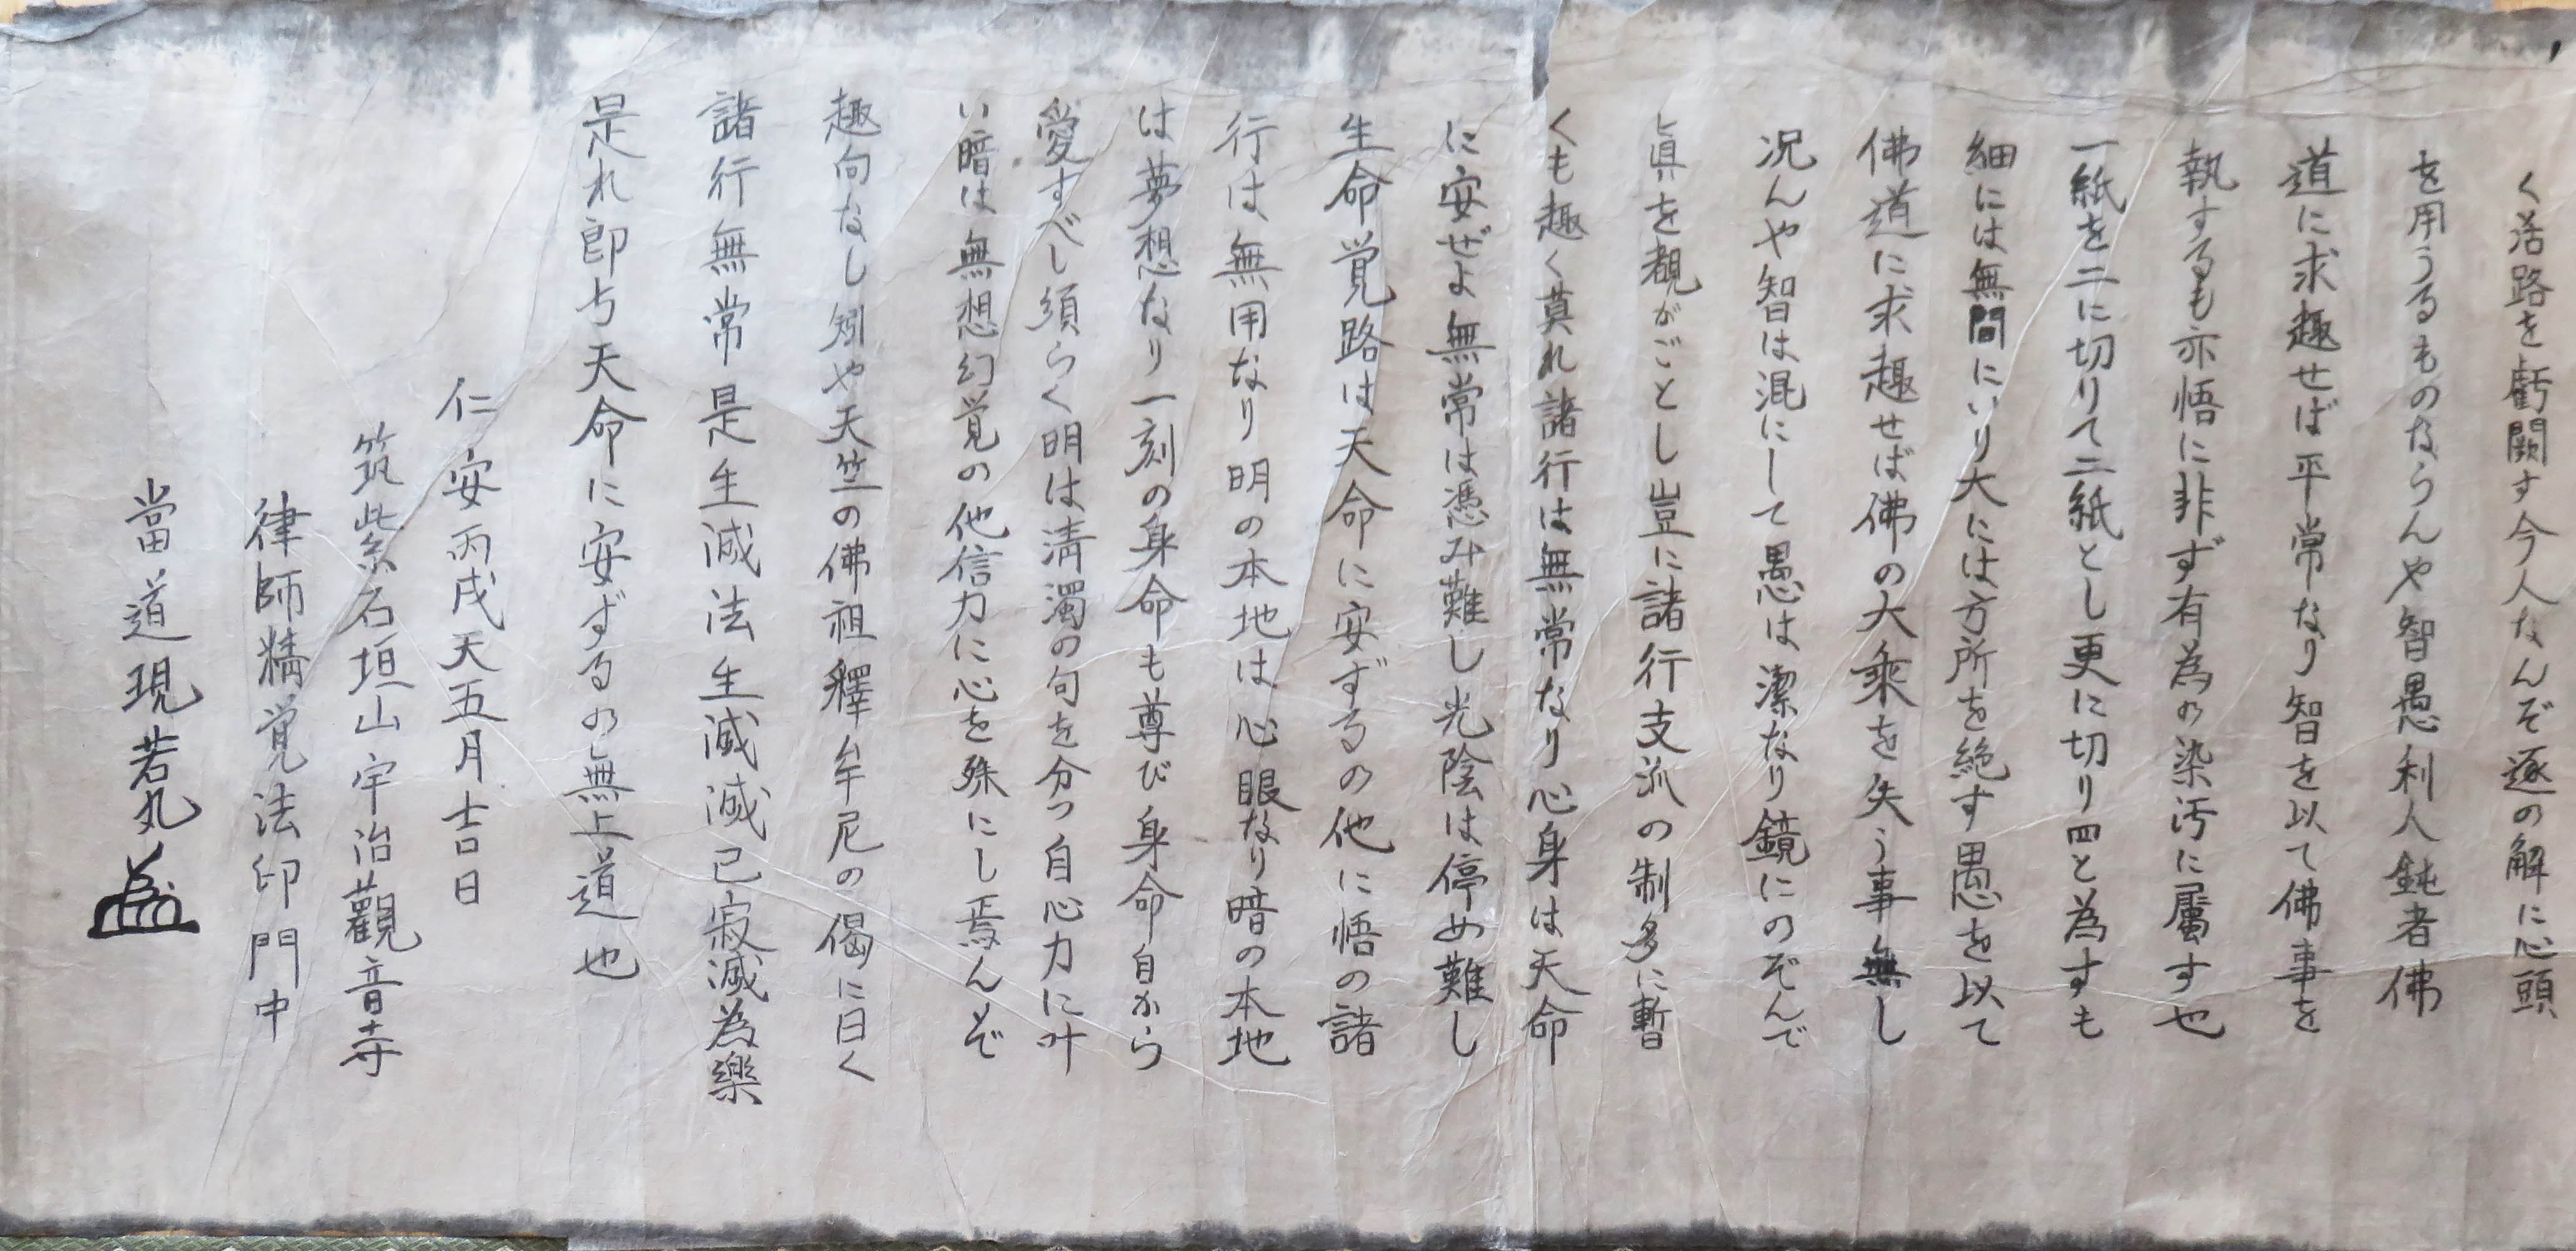 く活路を虧闕す今人なんぞ逐の解に心頭
を用うるものならんや智愚利人鈍者佛
道に求趣せば平常なり智を以て佛事を
執するも亦悟に非ず有為の染汚に屬す也
一紙を二に切りて二紙とし更に切り四と為すも
細には無間にいり大には方所を絶す愚を以て
佛道に求趣せば佛の大乘を失う事無し
況んや智は混にして愚は潔なり鏡にのぞんで
真を観がごとし豈に諸行支派の制多に暫
くも趣く莫れ諸行は無常なり心身は天命
に安ぜよ無常は憑み難し光陰は停め難し
生命覚路は天命に安ずるの他に悟の諸
行は無用なり明の本地は心眼なり暗の本地
は夢想なり一刻の身命も尊び身命自から
愛すべし須らく明は淸濁の句を分つ自心力に叶
い暗は無想幻覚の他信力に心を殊にし焉んぞ
趣向なし矧や天竺の佛祖釋牟尼の偈に曰く
諸行無常是生滅法生滅滅已寂滅為樂
是れ即ち天命に安ずるの無上道也
仁安丙戌天五月吉日
筑紫石垣山宇治觀音寺
律師精覚法印門中
當道現若丸